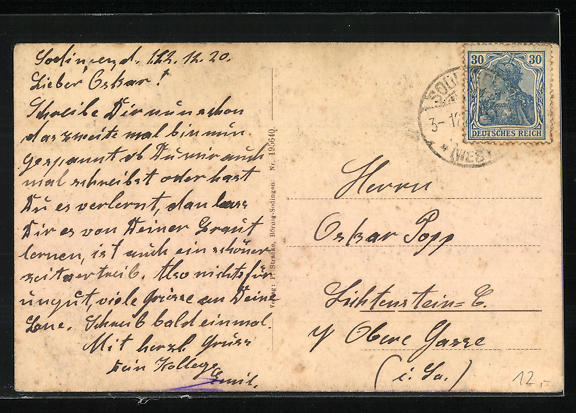 Sodingen d. 2.12.20.
Lieber Oskar!
Schreibe Dir nun schon
das zweite mal bin nun
gespannt ob Du mir auch
mal schreibst oder hast
Du es verlernt, dan lass
Dir es von Deiner Braut
lernen, ist auch ein schöner
zeitvertreib. Also nichts für
ungut, viele Grüsse an Deine
Schreib bald einmal.
Mit herzl Grüss
Dein Kollege
Emil.
Verlag: Börnig-Sodingen Nr. 195640
30 30
DEUTSCHES REICH
(WES
Herrn
Oskar Popp
Lichtenstein=C.
Obere Gasse
(i. Sa.)
12.-